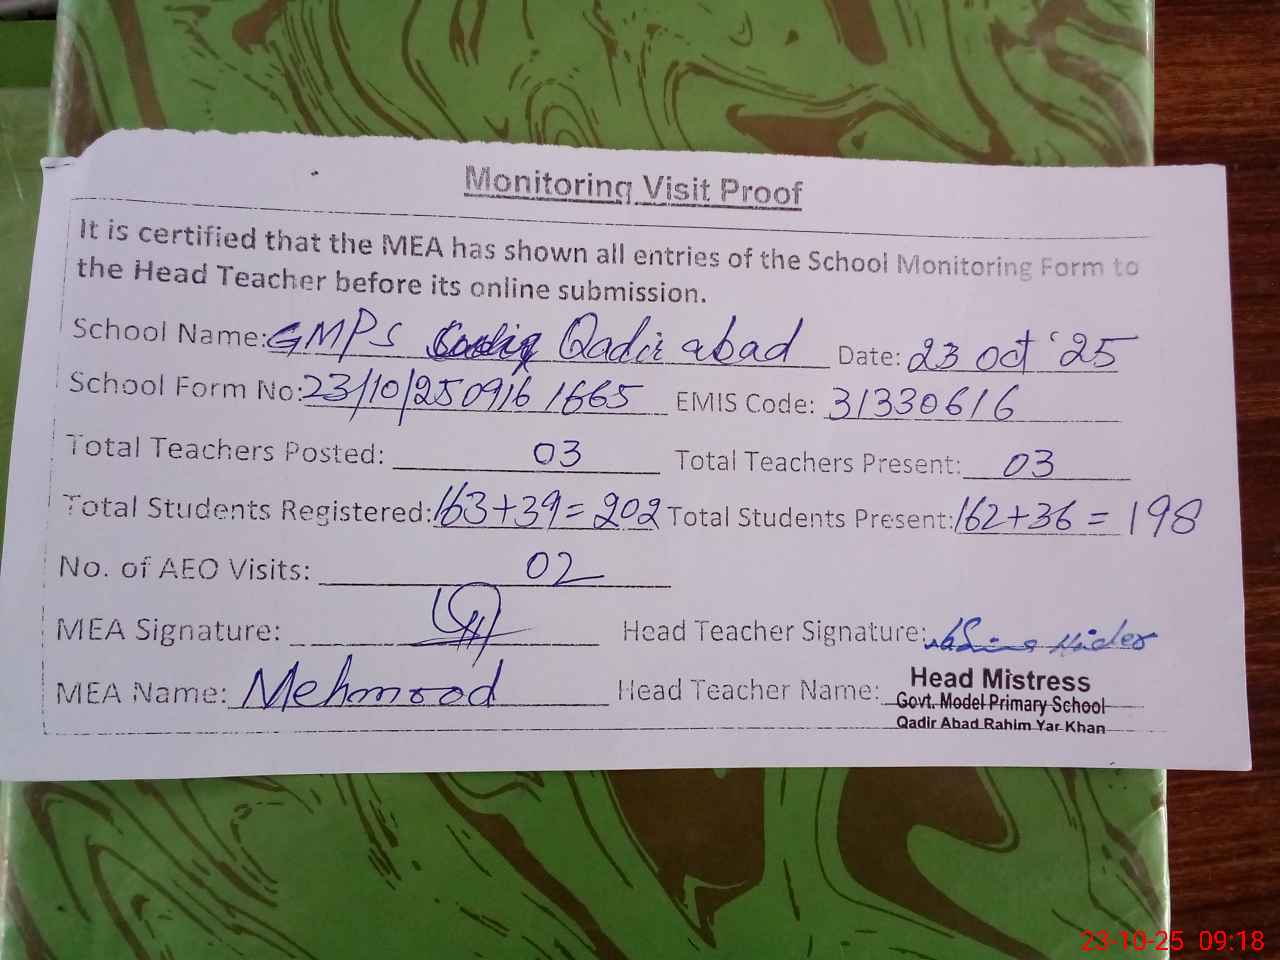 Monitoring Visit Proof
It is certified that the MEA has shown all entries of the School Monitoring Form to
the Head Teacher before its online submission.
School Name: GMPS Qadir abad Date: 23 oct '25
School Form No: 23/10/250916 1665 EMIS Code: 31330616
Total Teachers Posted: 03 Total Teachers Present: 03
Total Students Registered: 163+39=202 Total Students Present: 162+36=198
No. of AEO Visits: 02
MEA Signature: Head Teacher Signature: Hider
MEA Name: Mehmood Head Teacher Name: Head Mistress
Govt. Model Primary School
Qadir Abad Rahim Yar Khan
23-10-25 09:18